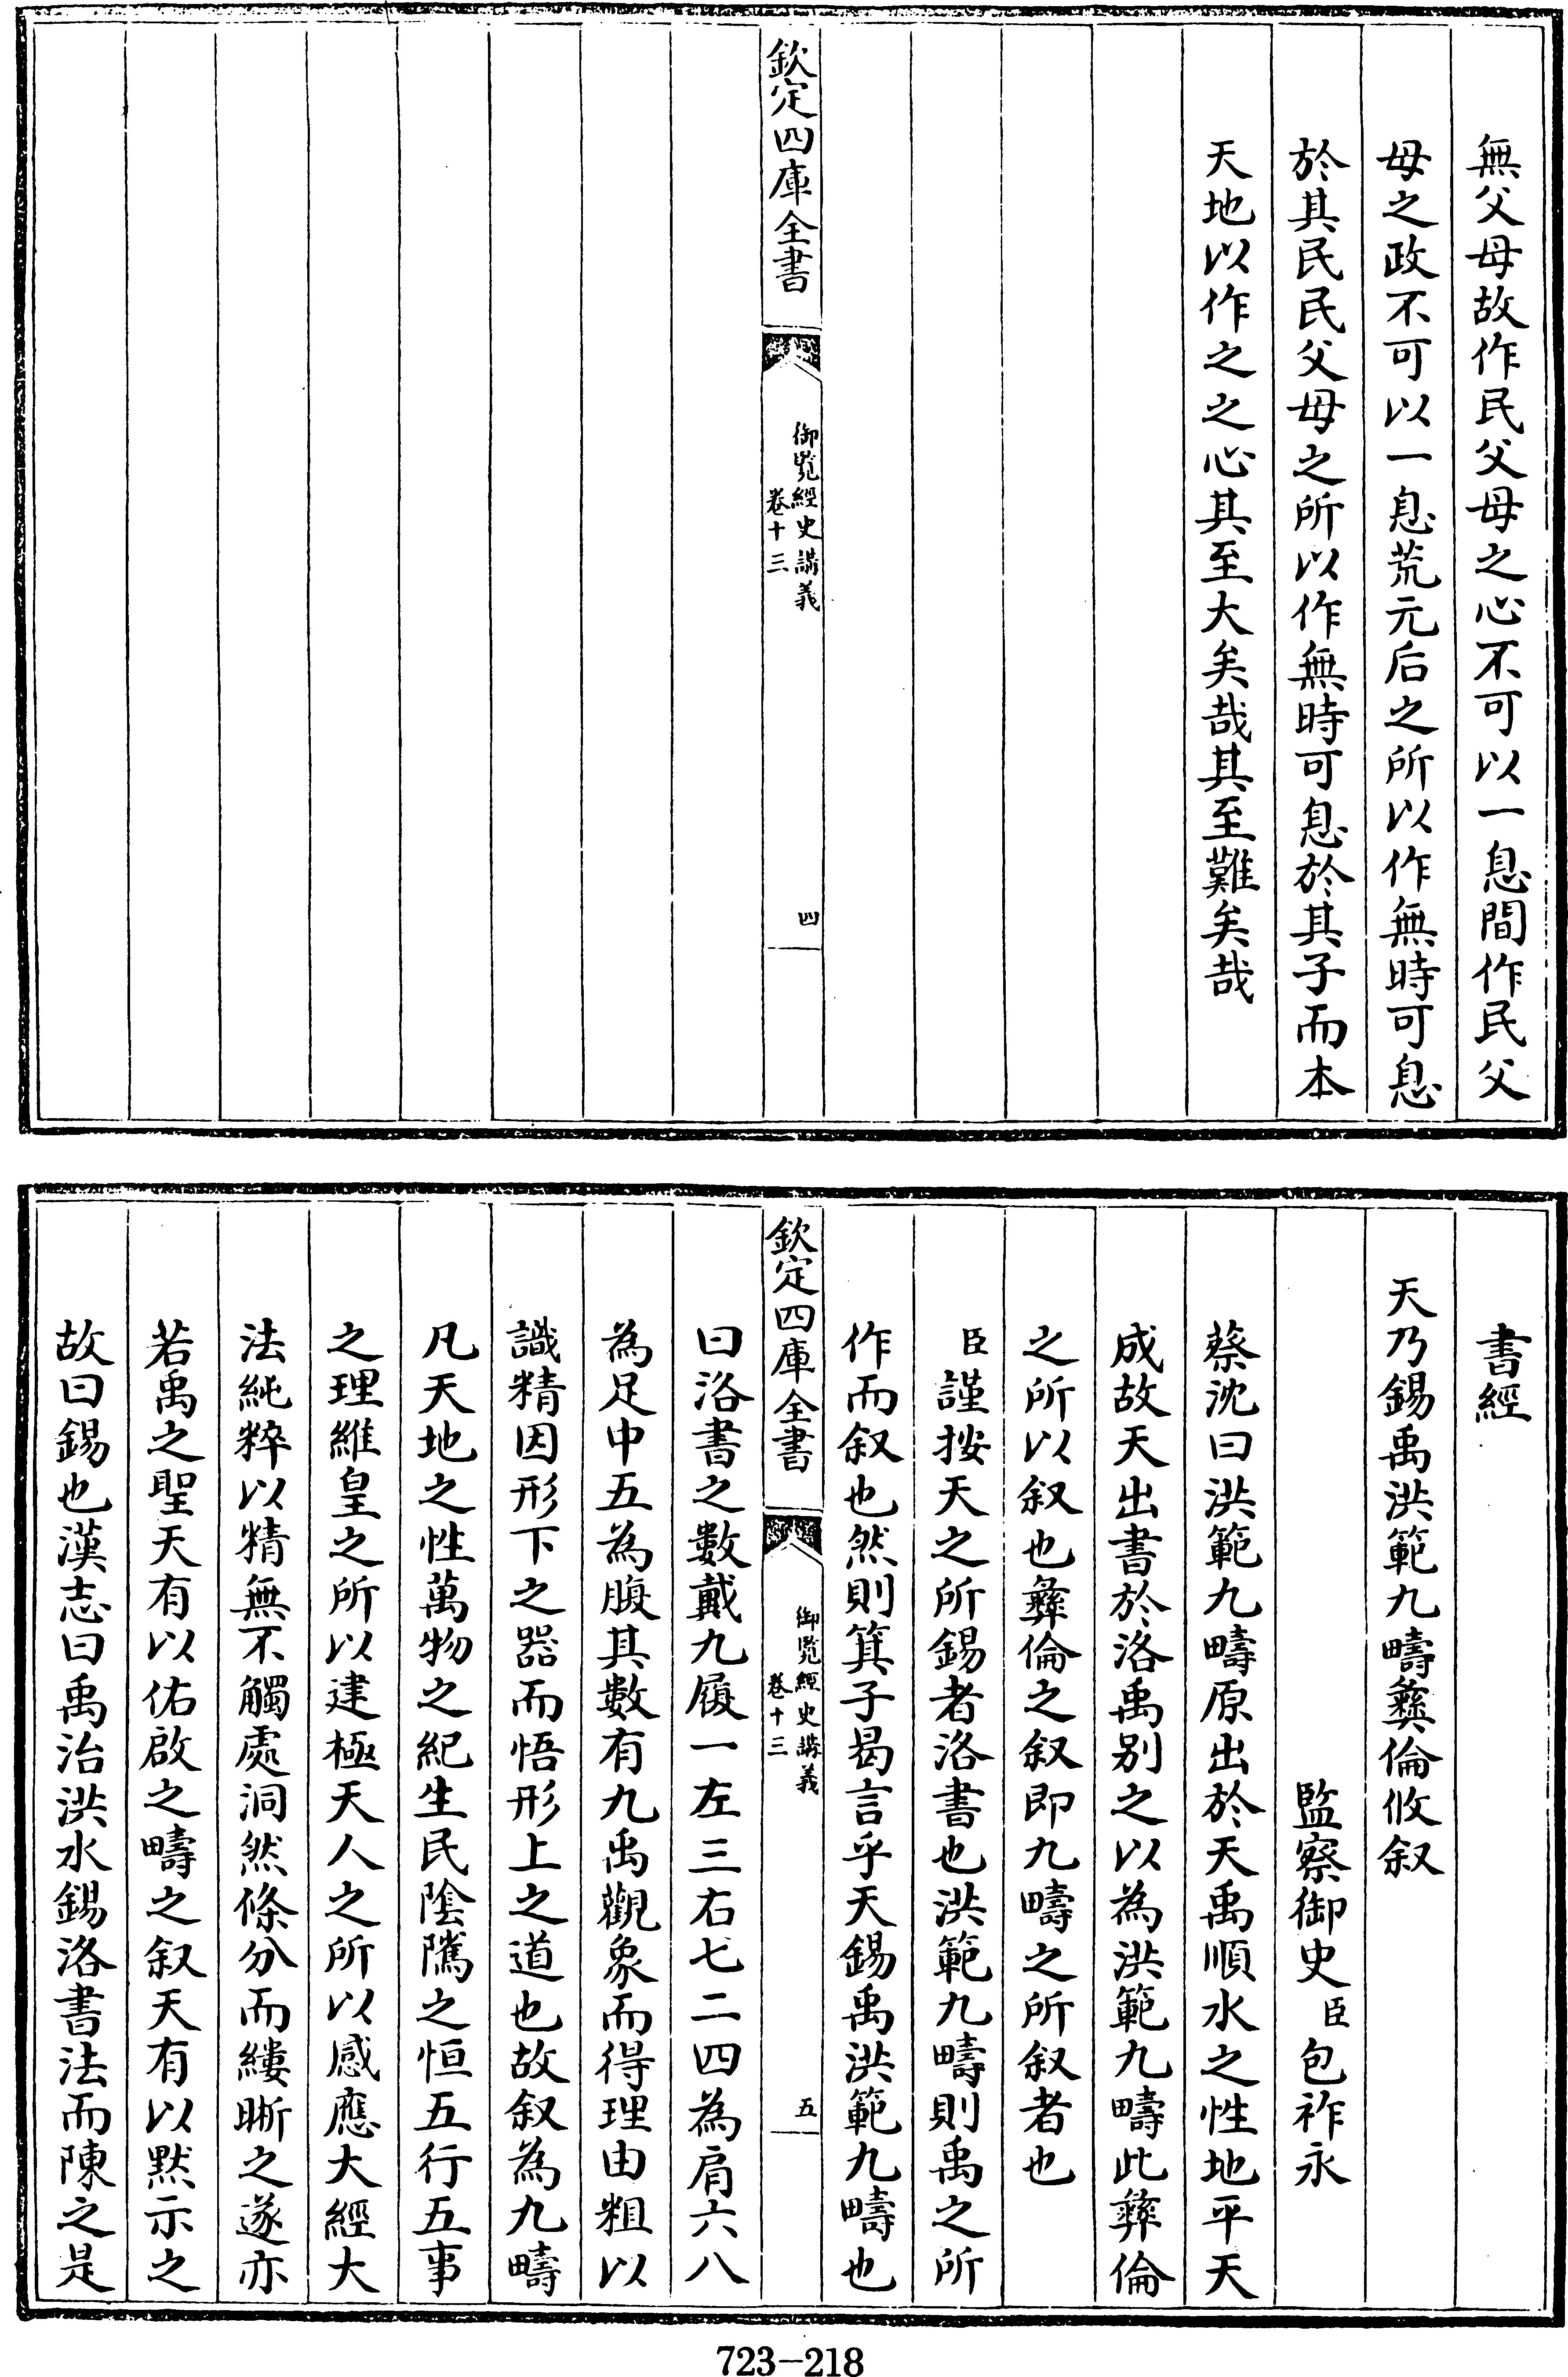 無父母故作民父母之心不可以一息間作民父
母之政不可以一息荒元后之所以作無時可息
於其民民父母之所以作無時可息於其子而本
天地以作之之心其至大矣哉其至難矣哉
欽定四庫全書
御覽經史講義
卷十三
四
書經
天乃錫禹洪範九疇彝倫攸叙
監察御史臣包祚永
蔡沈曰洪範九疇原出於天禹順水之性地平天
成故天出書於洛禹别之以為洪範九疇此彝倫
之所以叙也彝倫之叙即九疇之所叙者也
臣謹按天之所錫者洛書也洪範九疇則禹之所
作而叙也然則箕子曷言乎天錫禹洪範九疇也
欽定四庫全書
御覽經史講義
卷十三
五
曰洛書之數戴九履一左三右七二四為肩六八
為足中五為腹其數有九禹觀象而得理由粗以
識精因形下之器而悟形上之道也故叙為九疇
凡天地之性萬物之紀生民陰隲之恒五行五事
之理維皇之所以建極天人之所以感應大經大
法純粹以精無不觸處洞然條分而縷晰之遂亦
若禹之聖天有以佑啟之疇之叙天有以默示之
故曰錫也漢志曰禹治洪水錫洛書法而陳之是
723-218